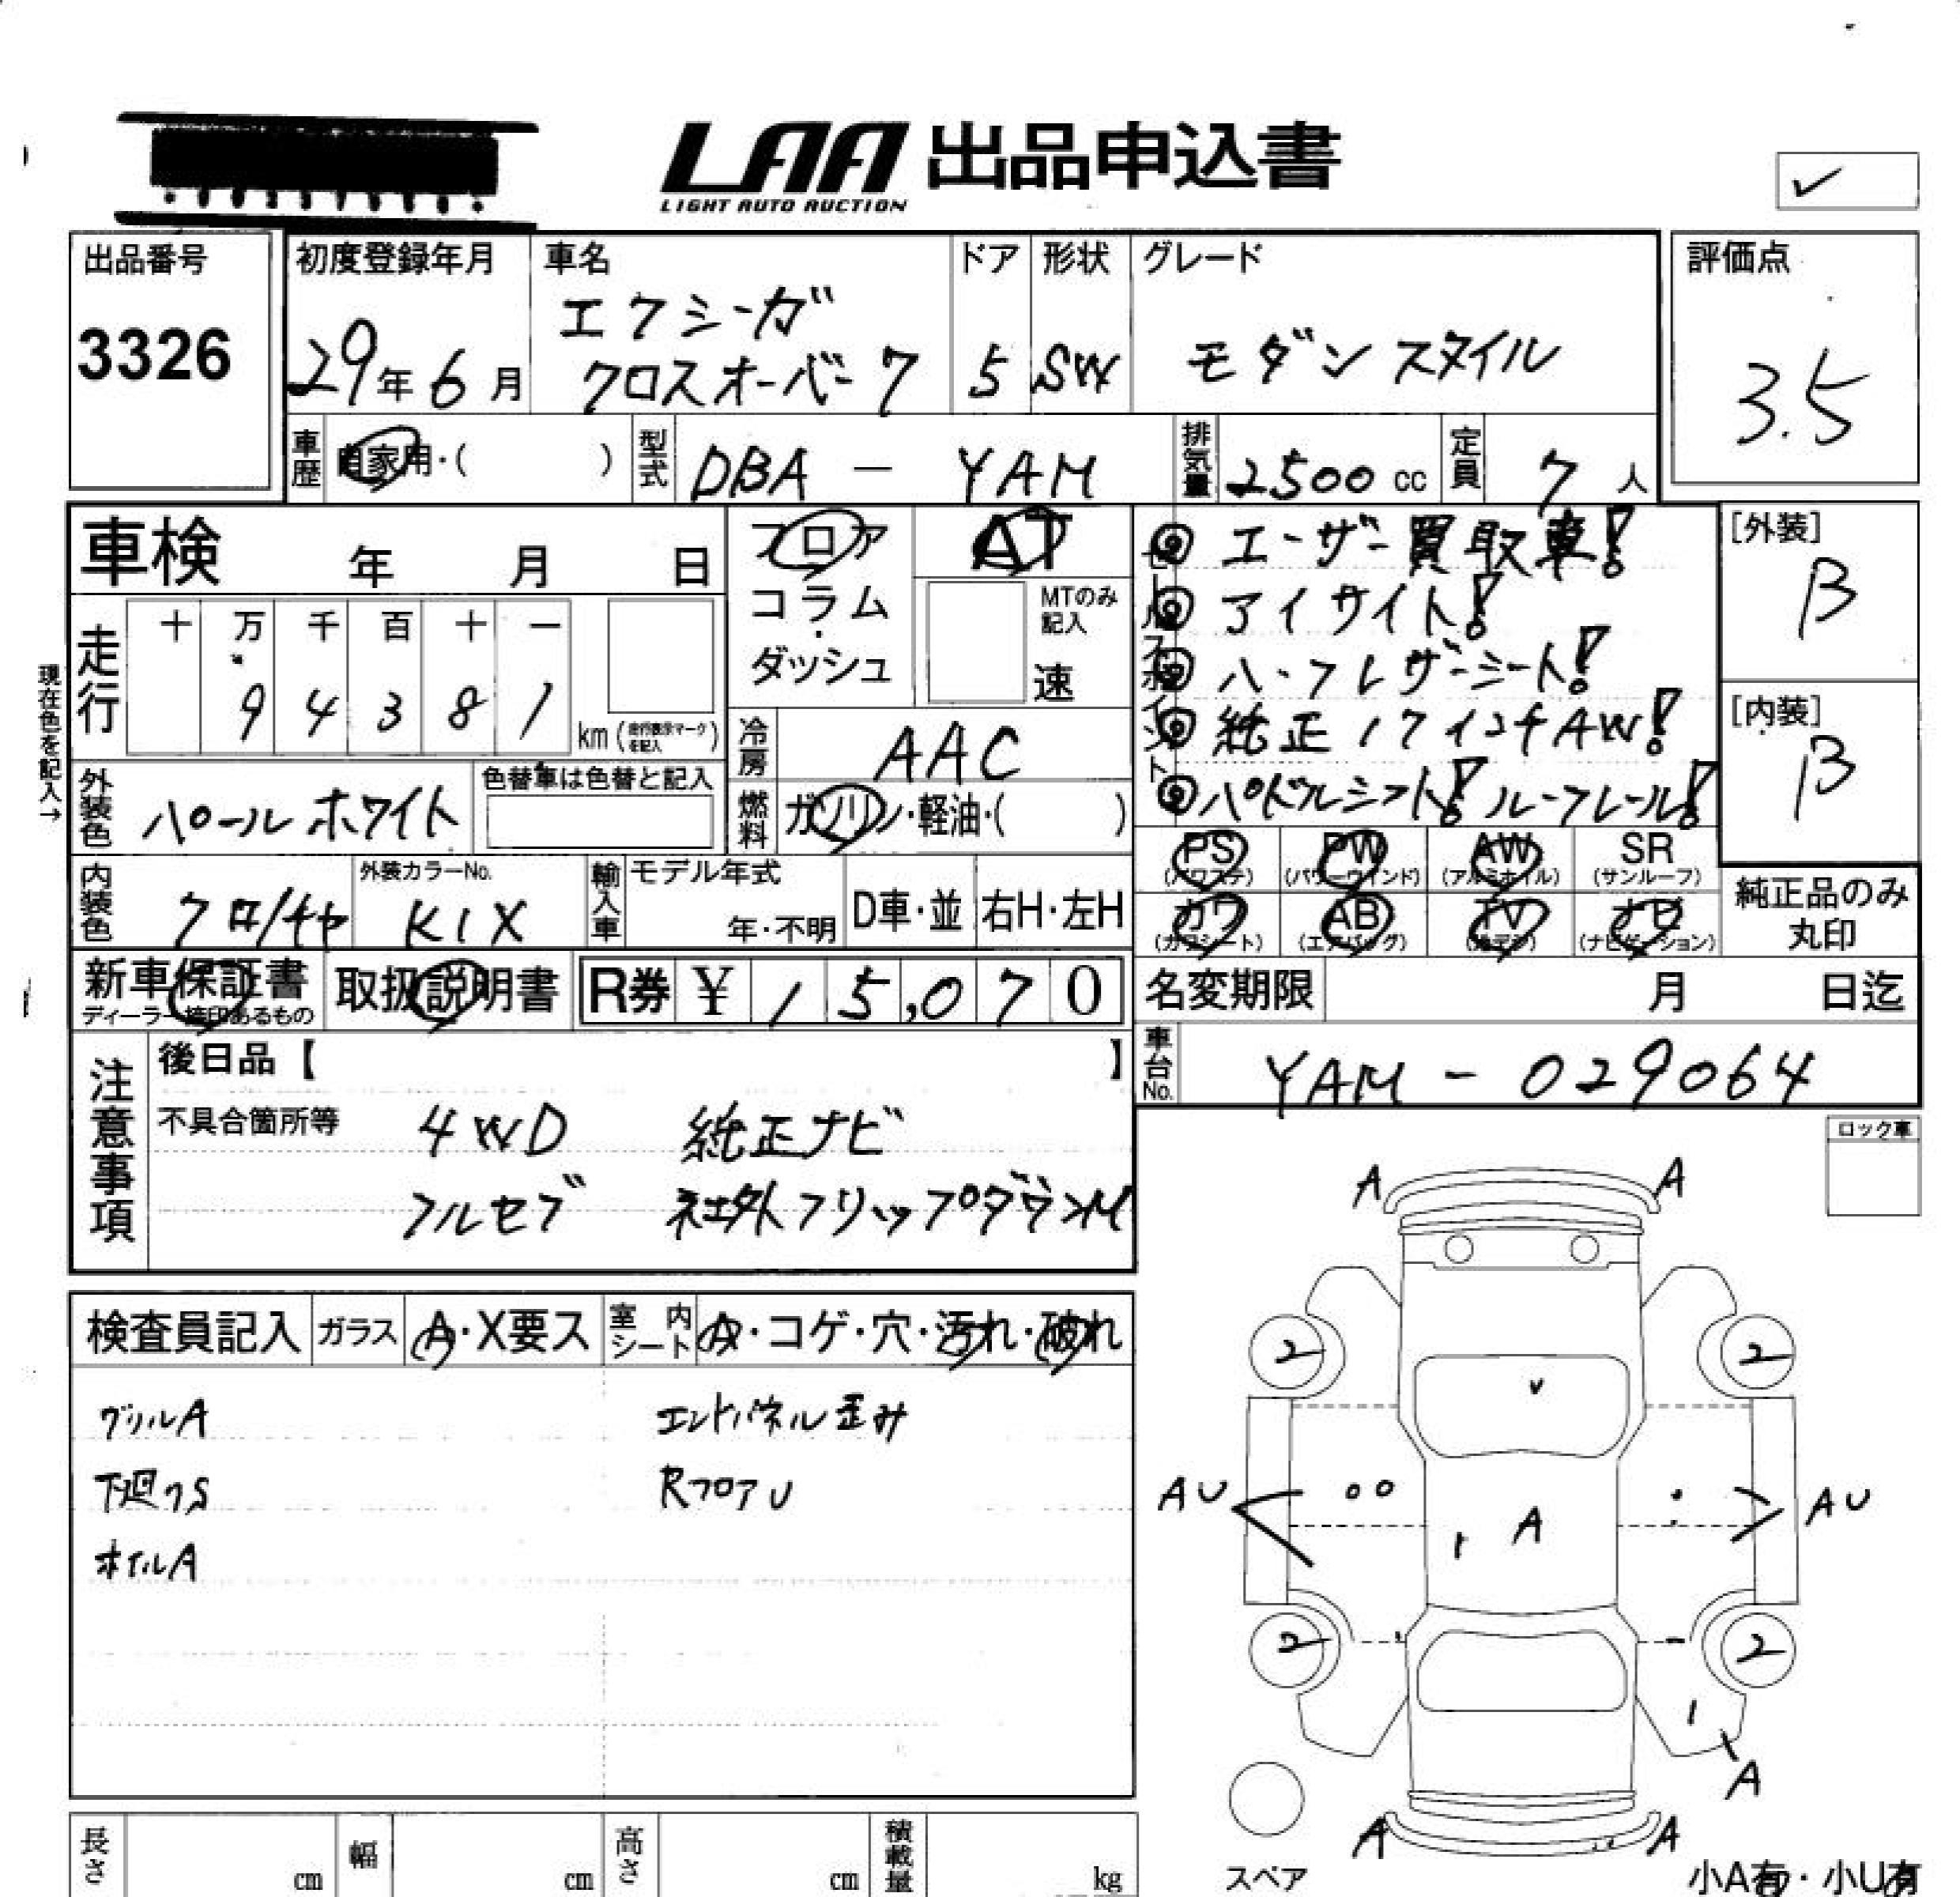 LAA 出品申込書
LIGHT AUTO AUCTION
✓
出品番号 初度登録年月 車名 ドア 形状 グレード 評価点
3326 29年6月 エクシーガ
クロスオーバー7 5 SW モダンスタイル 3.5
車歴 自家用・( ) 型式 DBA - YAM 排気量 2500 cc 定員 7 人
車検 年 月 日
フロア AT
コラム・ダッシュ
MTのみ記入 速
セールスポイント
◎ユーザー買取車!
◎アイサイト!
◎ハーフレザーシート!
◎純正17インチAW!
◎パドルシフト!ルーフレール!
[外装]
B
[内装]
B
現在色を記入→
走行 十 万 千 百 十 一
9 4 3 8 1 km (走行表示マークを記入)
冷房 AAC
外装色 パールホワイト 色替車は色替と記入
燃料 ガソリン・軽油・( )
PS (パワステ) PW (パワーウインド) AW (アルミホイル) SR (サンルーフ)
カワ (カワシート) AB (エアバッグ) TV (地デジ) ナビ (ナビゲーション)
純正品のみ
丸印
内装色 クロ/チャ 外装カラーNo. KIX 輸入車 モデル年式 年・不明 D車・並 右H・左H
新車保証書 ディーラー捺印あるもの 取扱説明書 R券 ¥ 15,070
名変期限 月 日迄
車台No. YAM - 029064
注意事項
後日品【 】
不具合箇所等 4WD 純正ナビ
フルセグ 社外フリップダウンM
ロック車
検査員記入 ガラス A・X要ス 室内シート A・コゲ・穴・汚れ・破れ
グリルA エンドパネル歪み
下廻りS RフロアU
ホイルA
A A
2 2
AU A AU
2 2
A
A A
スペア
小A有・小U有
長さ cm 幅 cm 高さ cm 積載量 kg